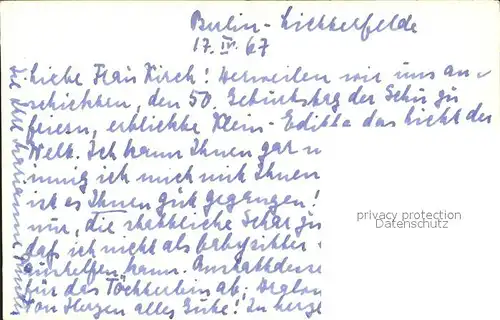 Berlin-Lichterfelde
17. IV. 67
Liebe Frau Kirch! Derweilen wir uns an-
schickten, den 50. Geburtstag der Schu zu
feiern, erblickte Klein-Editha das Licht der
Welt. Ich kann Ihnen gar n
innig ich mich mit Ihnen
ist es Ihnen gut gegangen!
nur, die stattliche Schar zu
daß ich nicht als babysitter
aushelfen kann. Anstattdesse
für das Töchterlein ab,
Von Herzen alles Gute! In herzl
privacy protection
Datenschutz